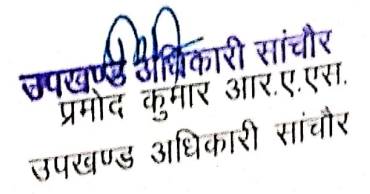 उपखण्ड अधिकारी सांचौर
प्रमोद कुमार आर.ए.एस.
उपखण्ड अधिकारी सांचौर